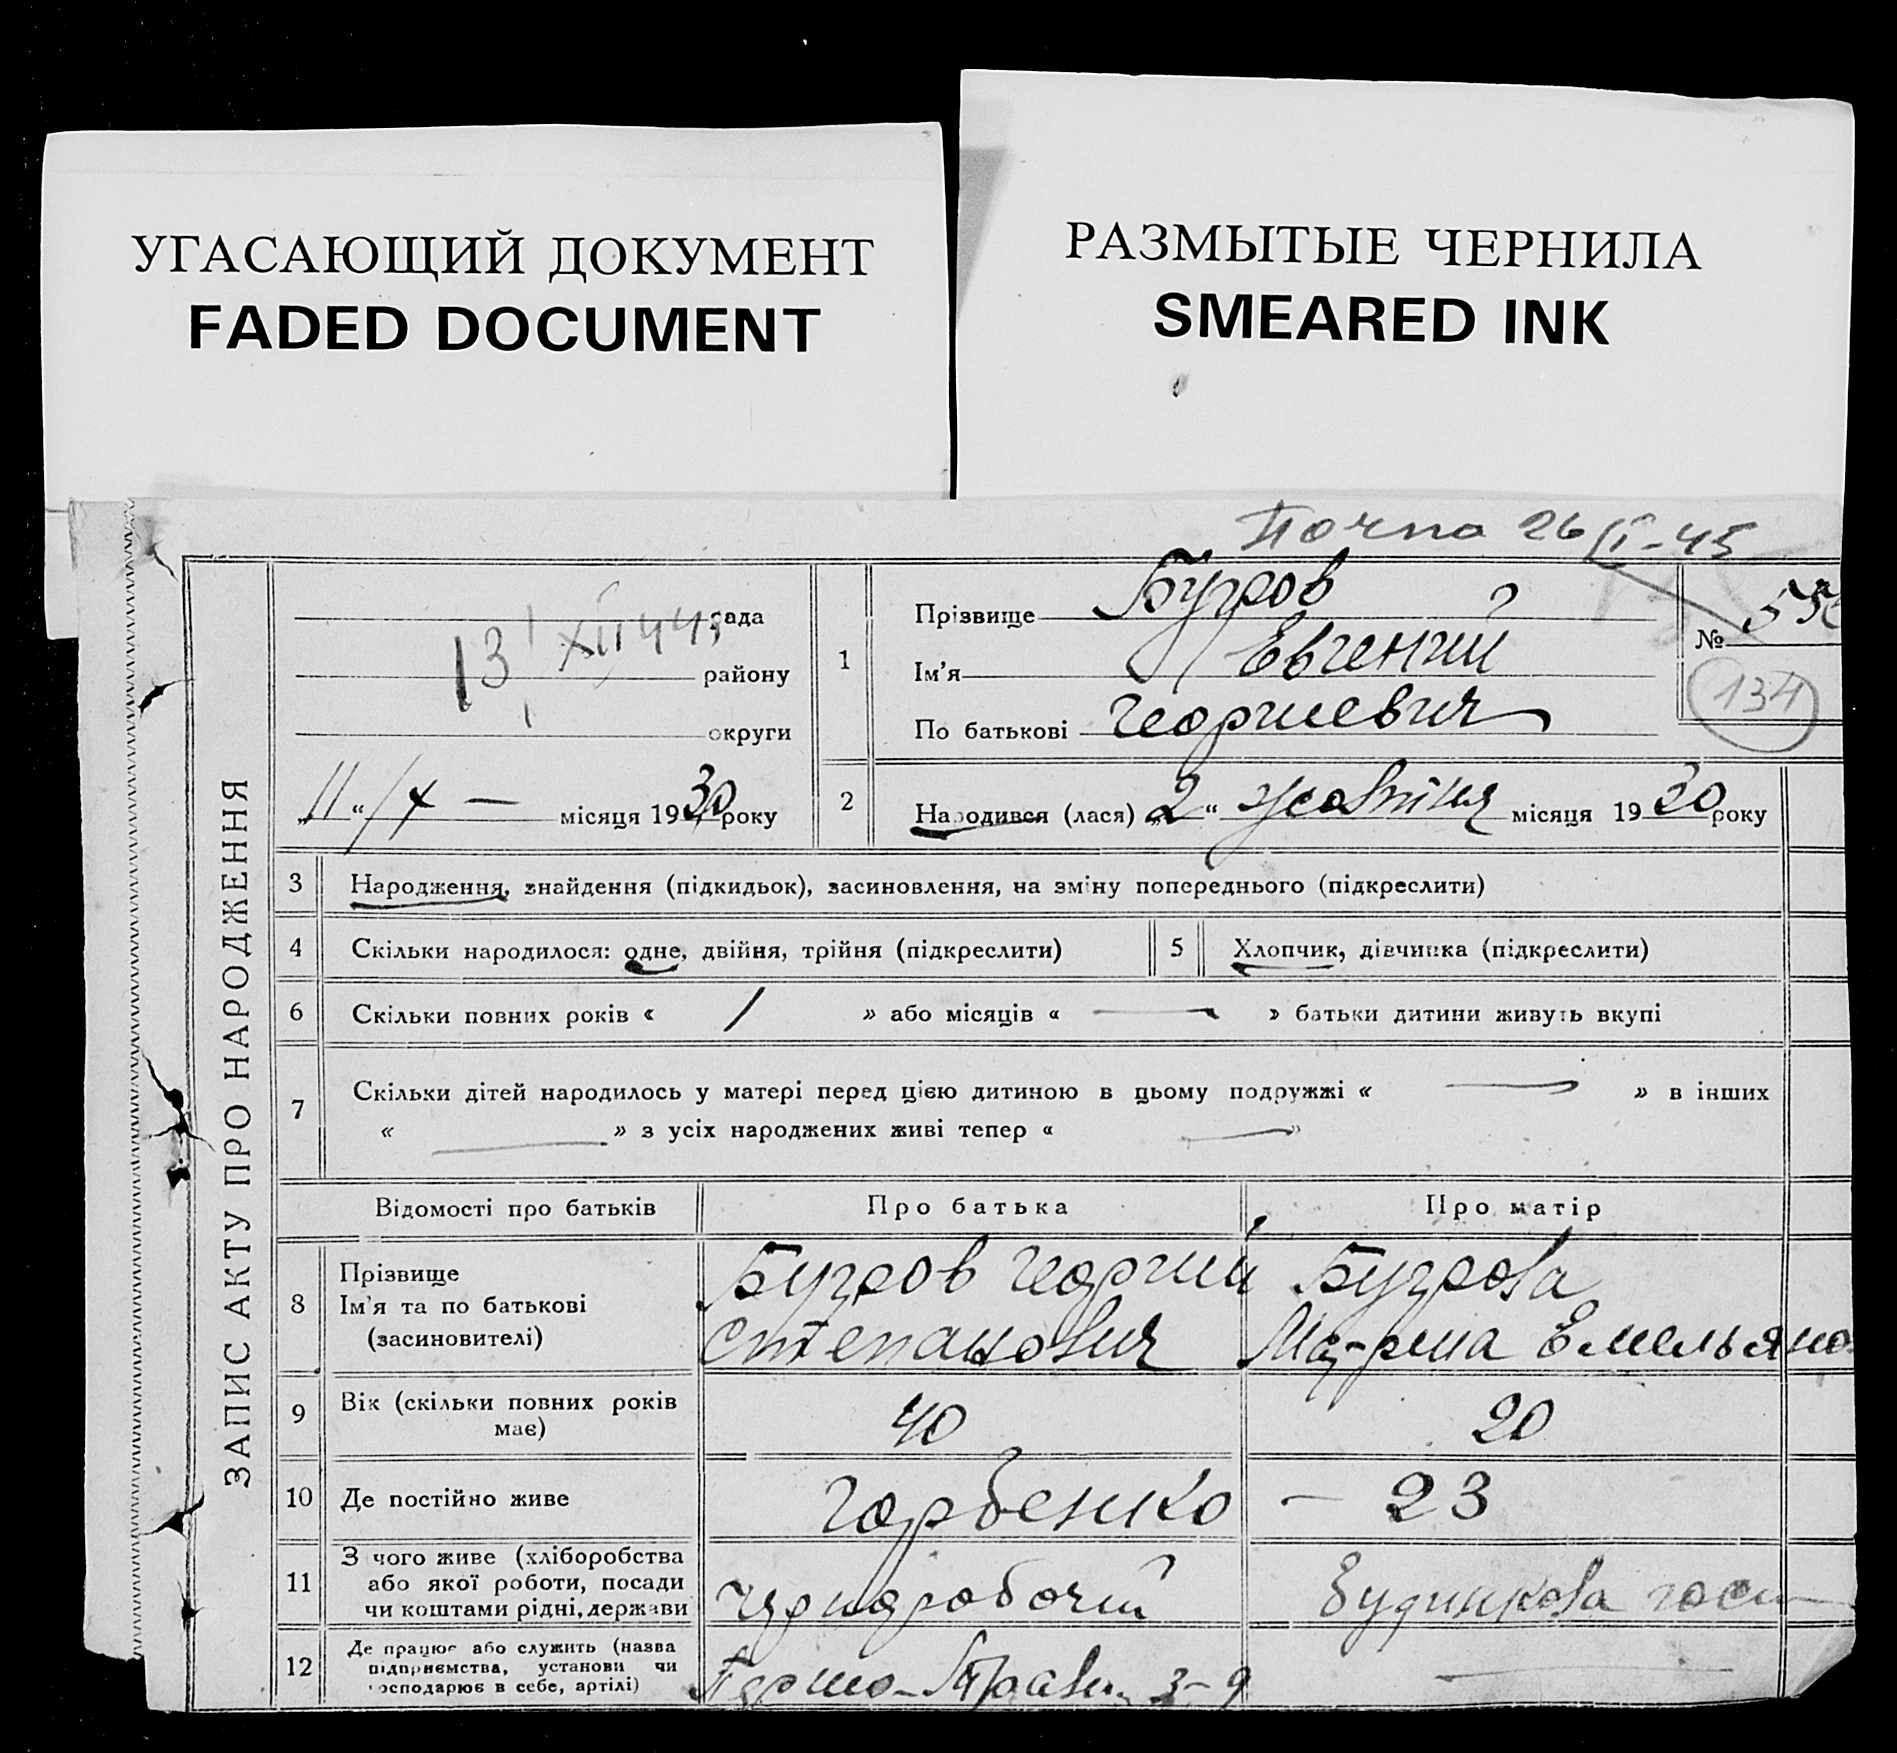 УГАСАЮЩИЙ ДОКУМЕНТ
FADED DOCUMENT
РАЗМЫТЫЕ ЧЕРНИЛА
SMEARED INK
26/II-45
ЗАПИС АКТУ ПРО НАРОДЖЕННЯ
рада
13 XII 44
району
округи
„11“ / X — місяця 1930 року
1
Прізвище Бугров
Ім’я Евгений
По батькові Георгиевич
№
134
2
Народився (лася) „2“ жовтня місяця 1930 року
3 Народження, знайдення (підкидьок), засиновлення, на зміну попереднього (підкреслити)
4 Скільки народилося: одне, двійня, трійня (підкреслити)
5 Хлопчик, дівчинка (підкреслити)
6 Скільки повних років « 1 » або місяців « — » батьки дитини живуть вкупі
7 Скільки дітей народилось у матері перед цією дитиною в цьому подружжі « — » в інших
« — » з усіх народжених живі тепер « — »
Відомості про батьків Про батька Про матір
8 Прізвище
Ім’я та по батькові
(засиновителі)
Бугров Георгий
Степанович
Бугрова
Марина Емельяно
9 Вік (скільки повних років
має)
40 20
10 Де постійно живе Горбенко — 23
11 З чого живе (хліборобства
або якої роботи, посади
чи коштами рідні, держави
чорноробочий
будинкова госп
12 Де працює або служить (назва
підприємства, установи чи
господарює в себе, артілі)